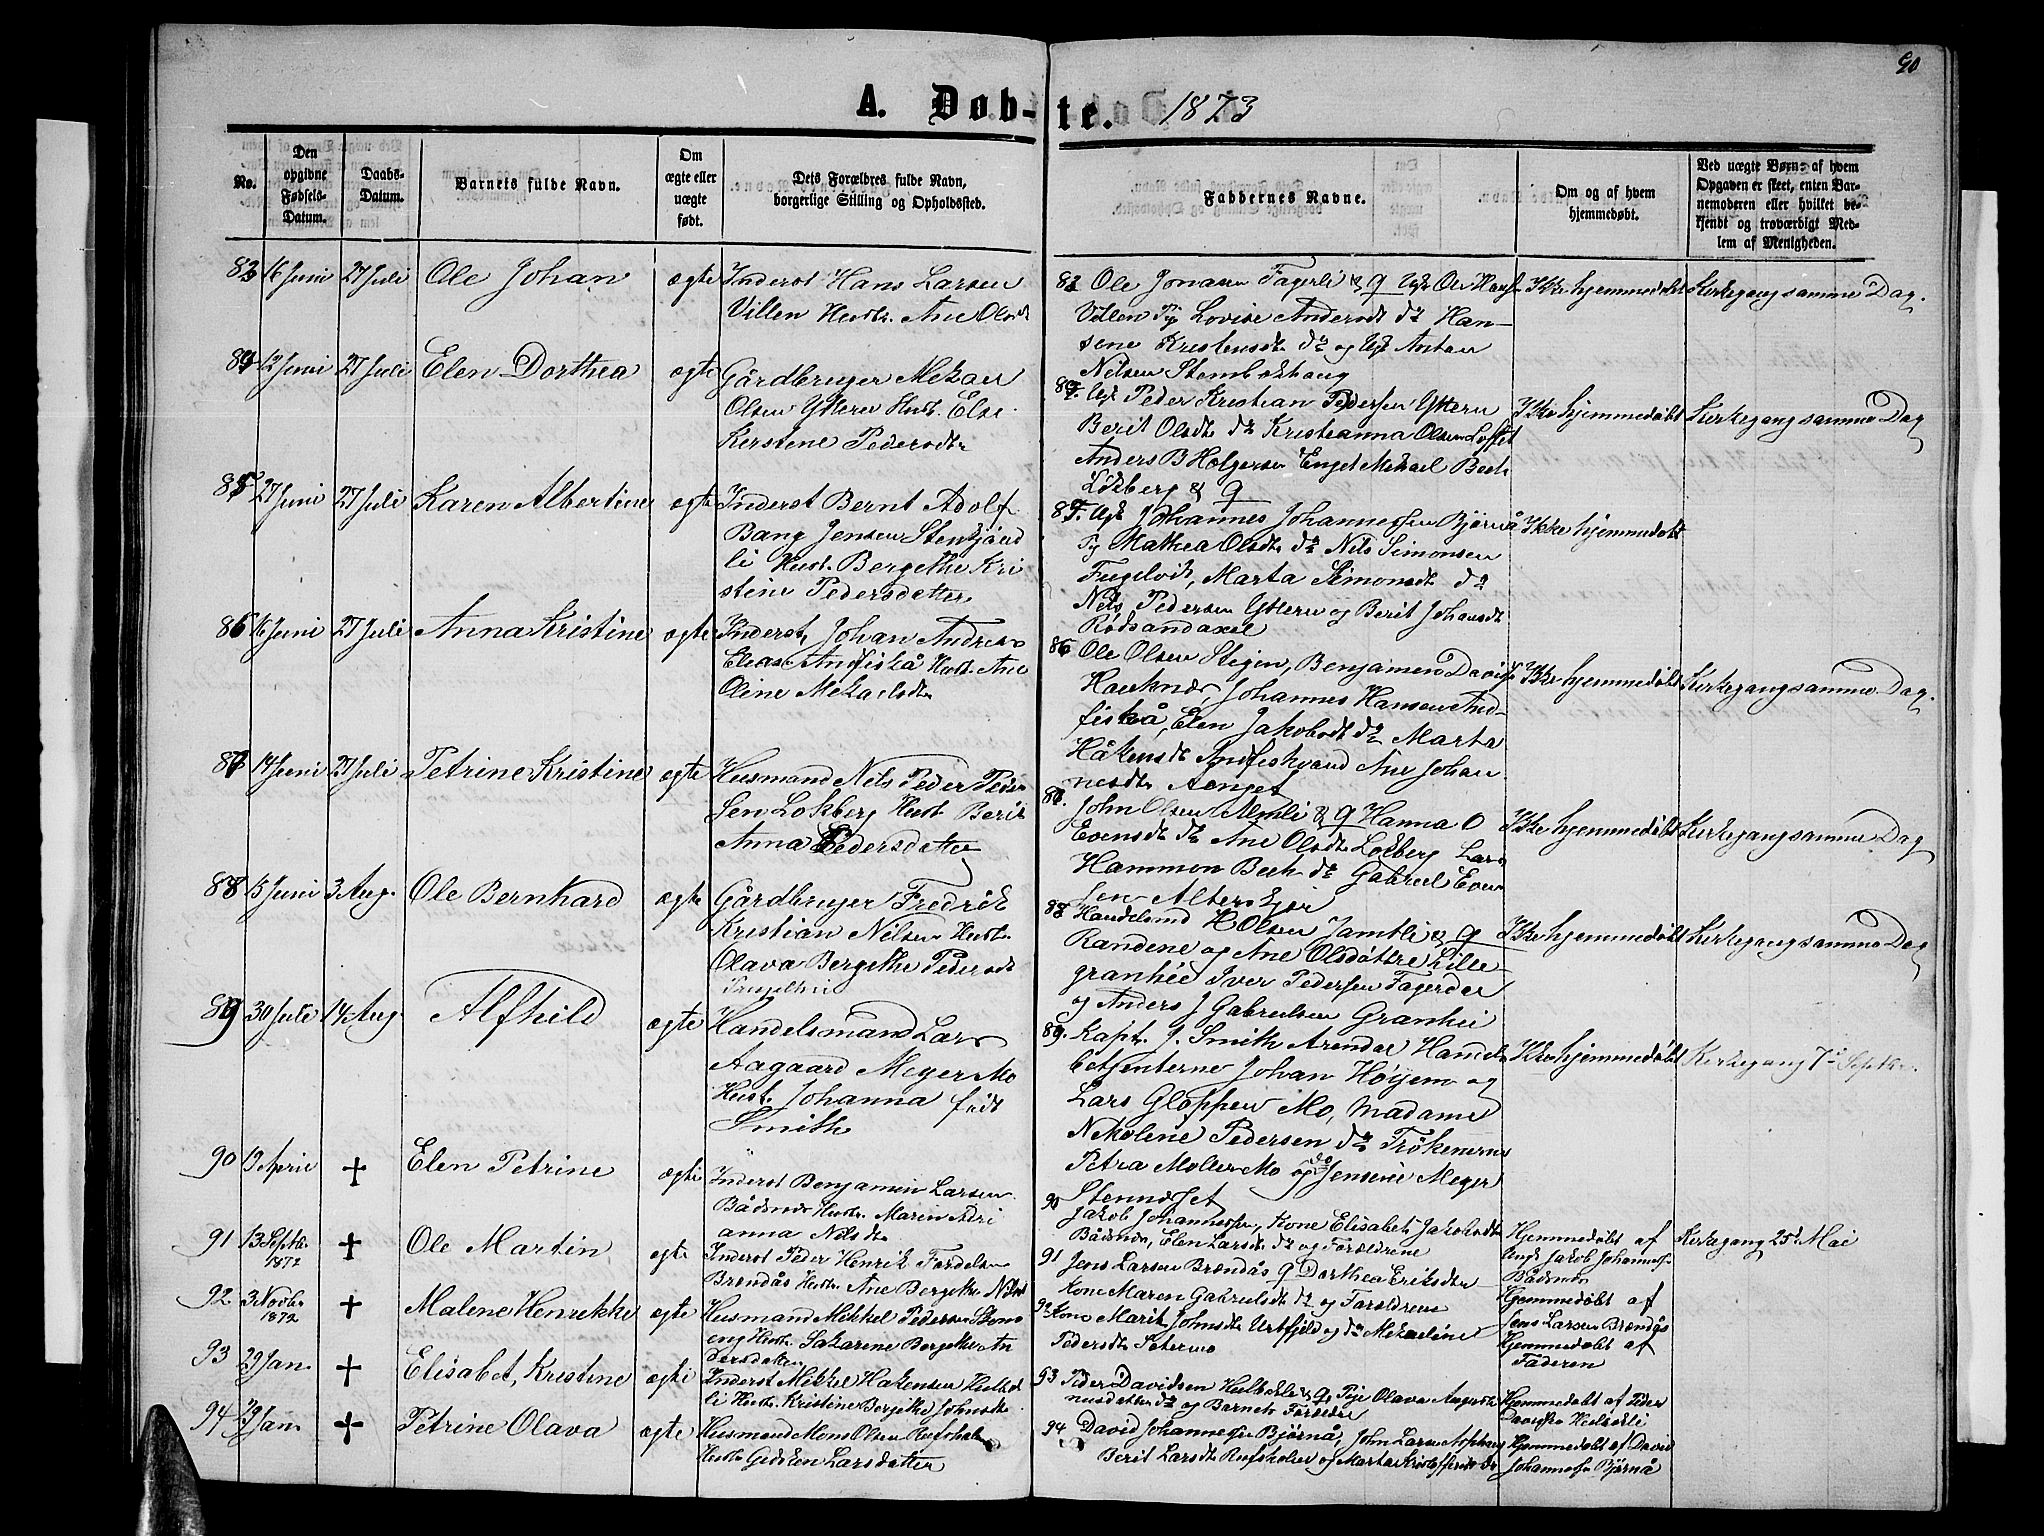 90
A. Døb-te. 1873
No.
Den opgivne Fødsels-Datum.
Daabs-Datum.
Barnets fulde Navn.
Om ægte eller uægte født.
Dets Forældres fulde Navn, borgerlige Stilling og Opholdssted.
Faddernes Navne.
Om og af hvem hjemmedøbt.
Ved uægte Børn: af hvem Opgaven er skeet, enten Barnemoderen eller hvilket bekjendt og troværdigt Medlem af Menigheden.
83 16 Juni 27 Juli Ole Johan ægte Inderst Hans Larsen
Villen Hustr. Ane Olsdt
83 Ole Jonasen Fagerli & q Ugk Ole Hansn
Villen Pig Lovise Andersdt do Han-
sene Kristensdt do og Ugk Anton
Nilsen Stombakhaug
Ikke hjemmedøbt Kirkegang samme Dag.
84 12 Juni 27 Juli Elen Dorthea ægte Gårdbruger Mekal
Olsen Yttern Hust. Else
Kirstene Pedersdtr
84. Ugk Peder Kristian Pedersen Yttern
Berit Olsdtr do Kristianna Olsen Loftet
Anders B Holgersen Enget Mekael Bech
Lökberg & q
Ikke hjemmedøbt Kirkegang samme Dag
85 27 Juni 27 Juli Karen Albertine ægte Inderst Bernt Adolf
Bang Jensen Stenkjönd
li Hust. Bergethe Kri
stine Pedersdatter
85. Ugk Johannes Johannessen Bjørnå
Pg Mathea Olsdtr do Nils Simonsen
Fugelvik, Marta Simonsdt do
Nils Pedersen Yttern og Berit Johansdt
Rödsandaxel
Ikke hjemmedøbt
86 16 Juni 27 Juli Anna Kristine ægte Inderst Johan Andreas
Eliasen Andfiskå Hust. Ane
Oline Mekalsdtr
86 Ole Olsen Stigen, Benjamin Davidsn
Hauknæs Johannes Hansen And-
fiskå, Elen Jakobsdt do Marta
Håkensdt Andfiskvand Ane Johan
nesdtr Aenget
Ikke hjemmedøbt Kirkegang samme Dag.
87 14 Juni 27 Juli Petrine Kristine ægte Husmand Nils Peder Peder
sen Lokberg Hust. Berit
Anna Pedersdatter
87. John Olsen Almli & q Hanna O
Evensdt do Ane Olsdtr Lokberg Lars
Hammon Bech do Gabriel Even
sen Alterskjær
Ikke hjemmedøbt Kirkegang samme Dag
88 15 Juni 3 Aug. Ole Bernhard ægte Gårdbruger Fredrik
Kristian Nilsen Hust.
Olava Bergethe Pedersdt
88 Handelsmd H Olsen Jamtli & q
Randine og Ane Olsdöttre Lille-
granhei Iver Pedersen Fagerdal
og Anders J Gabrielsen Granhei
Ikke hjemmedøbt Kirkegang samme Dag
89 30 Juli 14 Aug. Alfhild ægte Handelsmand Lars
Aagaard Meyer Mo
Hust. Johanna født
Smith
89. Kapt. J. Smith Arendal Handels
betjenterne Johan Höyem og
Lars Gloppen Mo, Madame
Nikoline Pedersen do Frökenerne
Petra Moller Mo og do Jensine Meyer
Stennæset
Ikke hjemmedøbt Kirkegang 7de Septbr.
90 13 April † Elen Petrine ægte Inderst Benjamin Larsen
Båsnæs Hust. Maren Adri
anna Nilsdtr
90 Jakob Johannessen, Kone Elisabet Jakobsdtr
Båsnæs, Elen Larsdt do og Forældrene
Hjemmedøbt af
Ungk Jakob Johannessn
Båsnæs
Kirkegang 25de Mai
91 13 Septbr. 1872 † Ole Martin ægte Inderst Peder Henrik Fordelsen
Brændås Hustr. Ane Bergethe Nilsdt
91 Jens Larsen Brændås q Dorthea Eriksdtr
Kone Maren Gabrielsdt do og Forældrene
Hjemmedøbt af
Jens Larsen Brændås
92 3 Novbr. 1872 † Malene Henrikke ægte Husmand Mikkel Pedersen Skono
eng Hustr. Sakarine Bergethe An
dersdatter
92 Kone Marit Johnsdtr Urtfjeld og do Mekaeline
Pedersdt Setermo
Hjemmedøbt af
Faderen
93 29 Jan. † Elisabet, Kristine ægte Inderst Mikkel Hakensen Heskel
li Hustr. Kristine Bergethe Johnsdtr
93 Peder Davidsen & q Pige Olava Magn
nusdatter do og Barnets Forældre
Hjemmedøbt af Peder
94 29 Jan. † Petrine Olava ægte Husmand Mons Olsen Refshalen
Hustr Gidsken Larsdatter
94 David Johannessen Bjørnå, John Larsen
Berit Larsdt Refshalen og Marta Kristoffersdt do
Hjemmedøbt af David
Johannessn Bjørnå